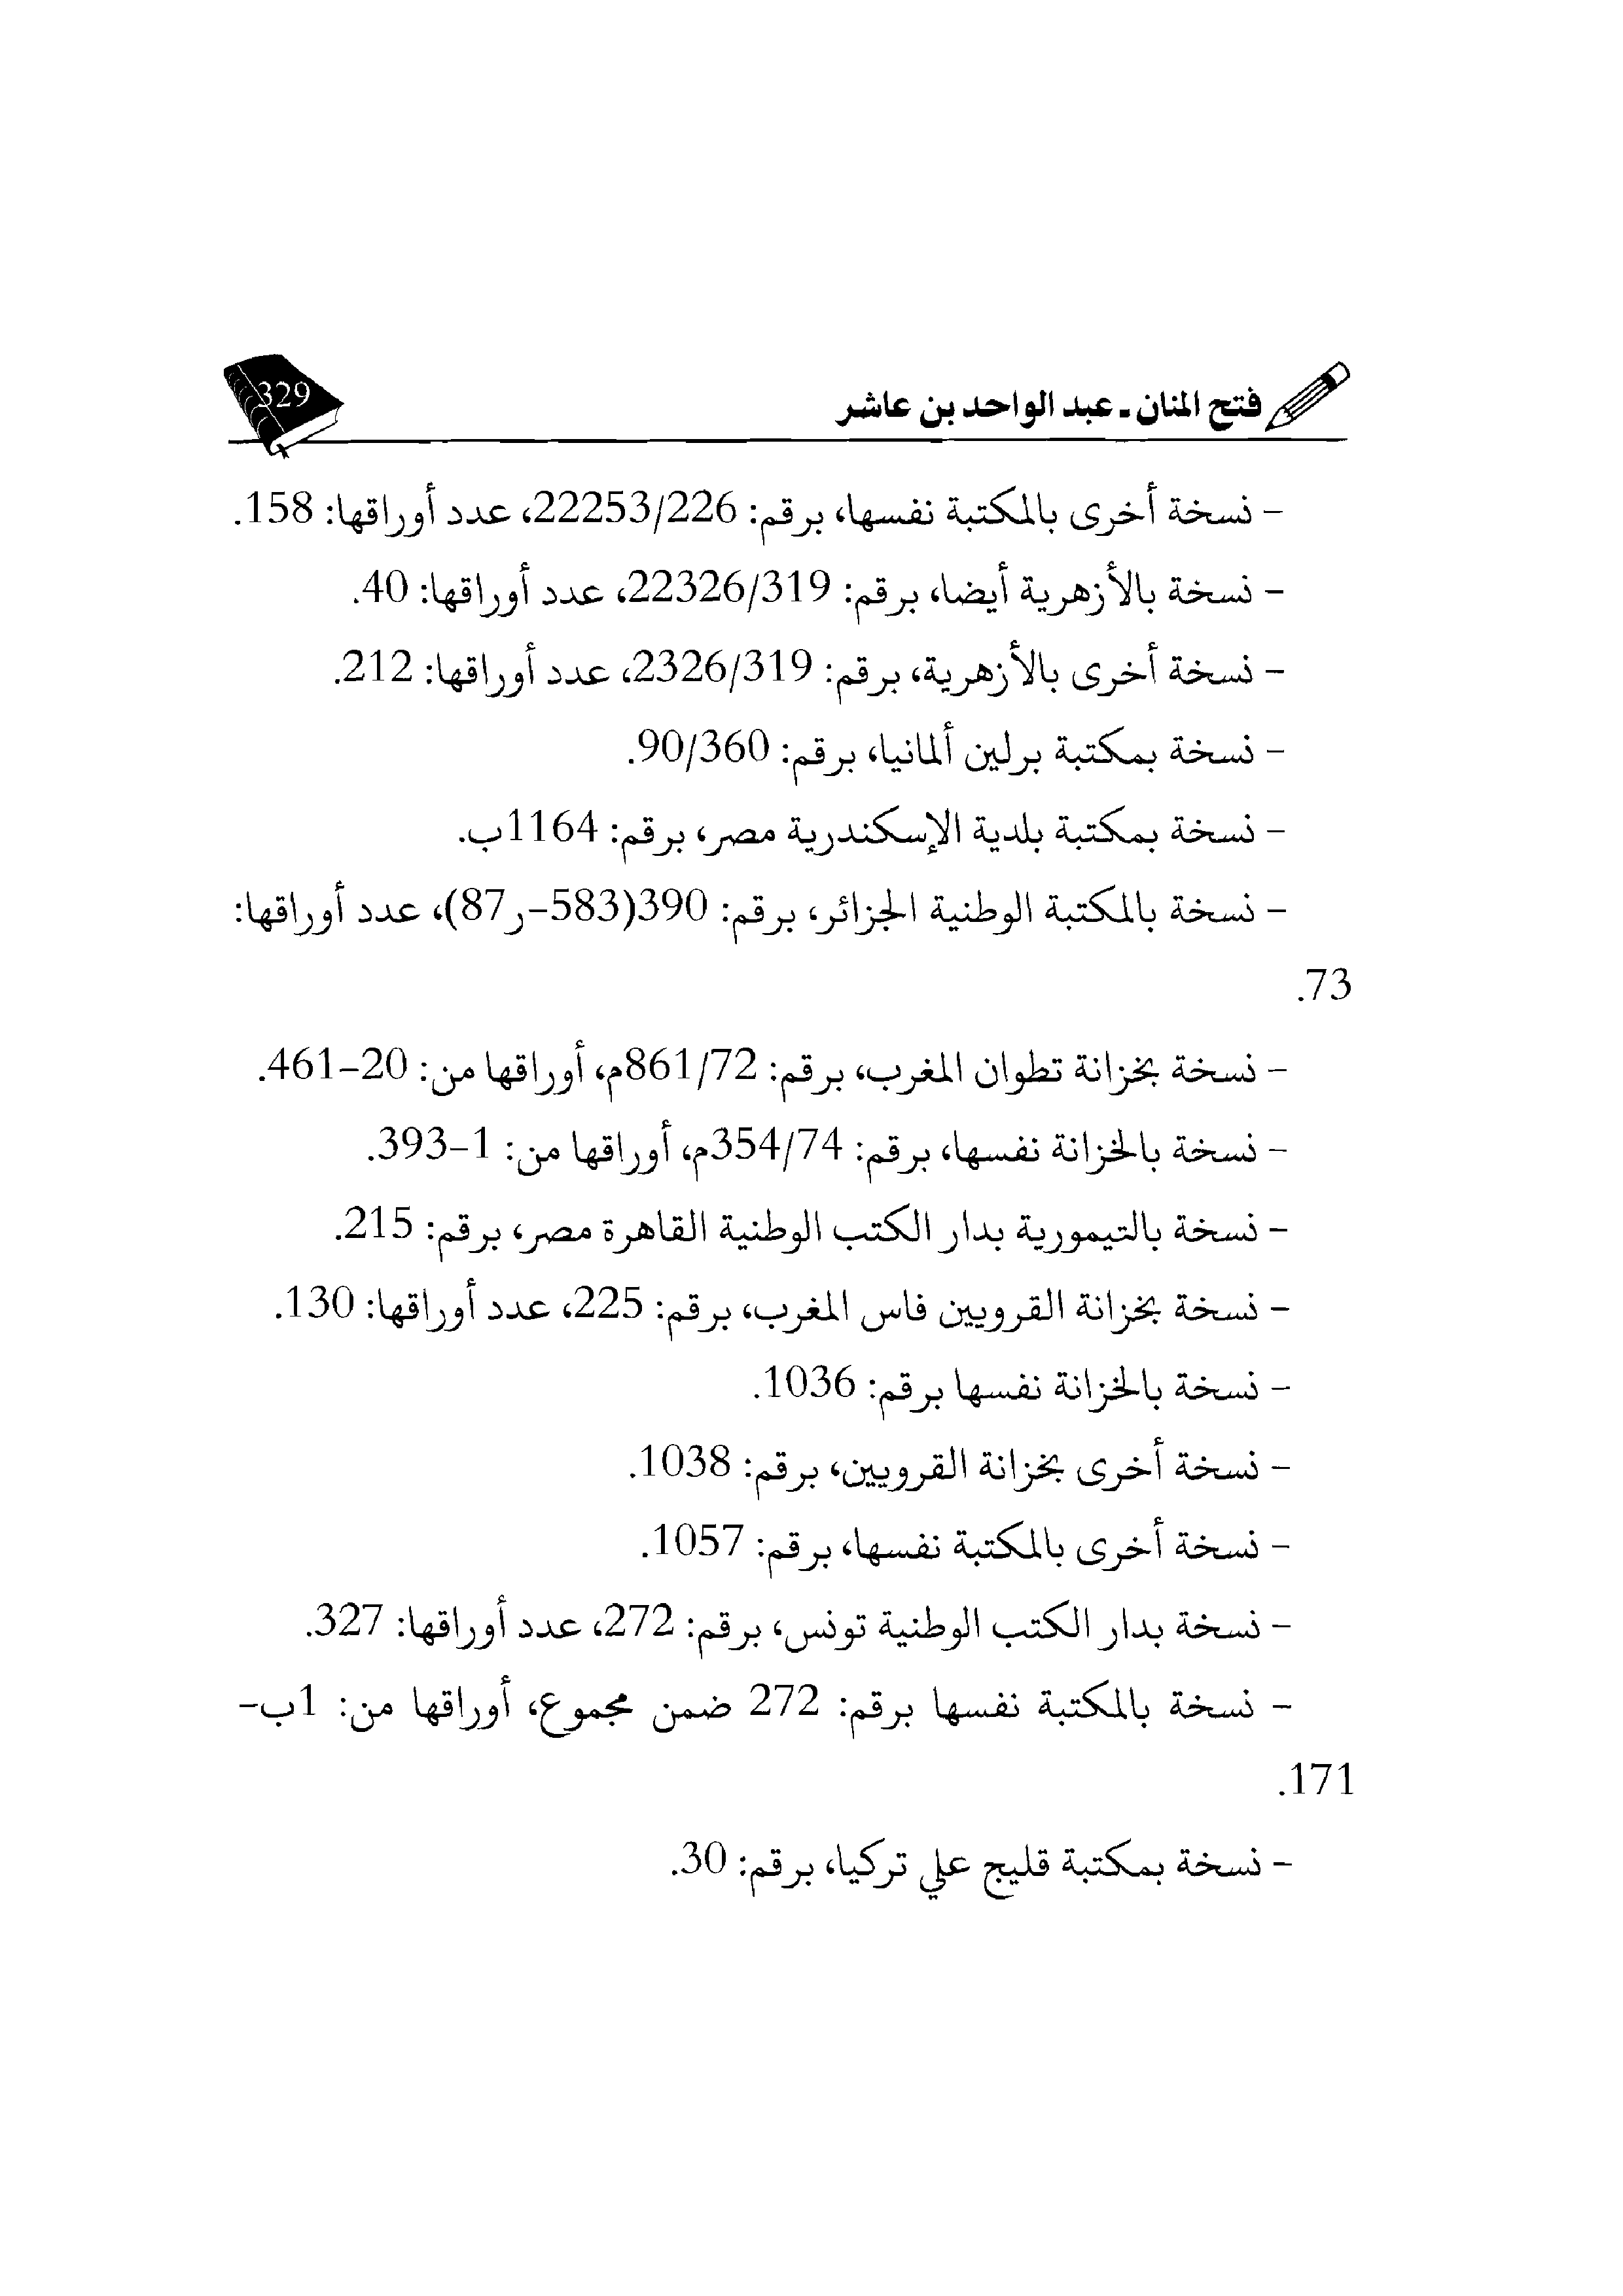 فتح المنان ـ عبد الواحد بن عاشر
329
- نسخة أخرى بالمكتبة نفسها، برقم: 22253/226، عدد أوراقها: 158.
- نسخة بالأزهرية أيضا، برقم: 22326/319، عدد أوراقها: 40.
- نسخة أخرى بالأزهرية، برقم: 2326/319، عدد أوراقها: 212.
- نسخة بمكتبة برلين ألمانيا، برقم: 90/360.
- نسخة بمكتبة بلدية الإسكندرية مصر، برقم: 1164ب.
- نسخة بالمكتبة الوطنية الجزائر، برقم: 390(583-ر87)، عدد أوراقها:
73.
- نسخة بخزانة تطوان المغرب، برقم: 861/72م، أوراقها من: 20-461.
- نسخة بالخزانة نفسها، برقم: 354/74م، أوراقها من: 1-393.
- نسخة بالتيمورية بدار الكتب الوطنية القاهرة مصر، برقم: 215.
- نسخة بخزانة القرويين فاس المغرب، برقم: 225، عدد أوراقها: 130.
- نسخة بالخزانة نفسها برقم: 1036.
- نسخة أخرى بخزانة القرويين، برقم: 1038.
- نسخة أخرى بالمكتبة نفسها، برقم: 1057.
- نسخة بدار الكتب الوطنية تونس، برقم: 272، عدد أوراقها: 327.
- نسخة بالمكتبة نفسها برقم: 272 ضمن مجموع، أوراقها من: 1ب-
171.
- نسخة بمكتبة قليج علي تركيا، برقم: 30.